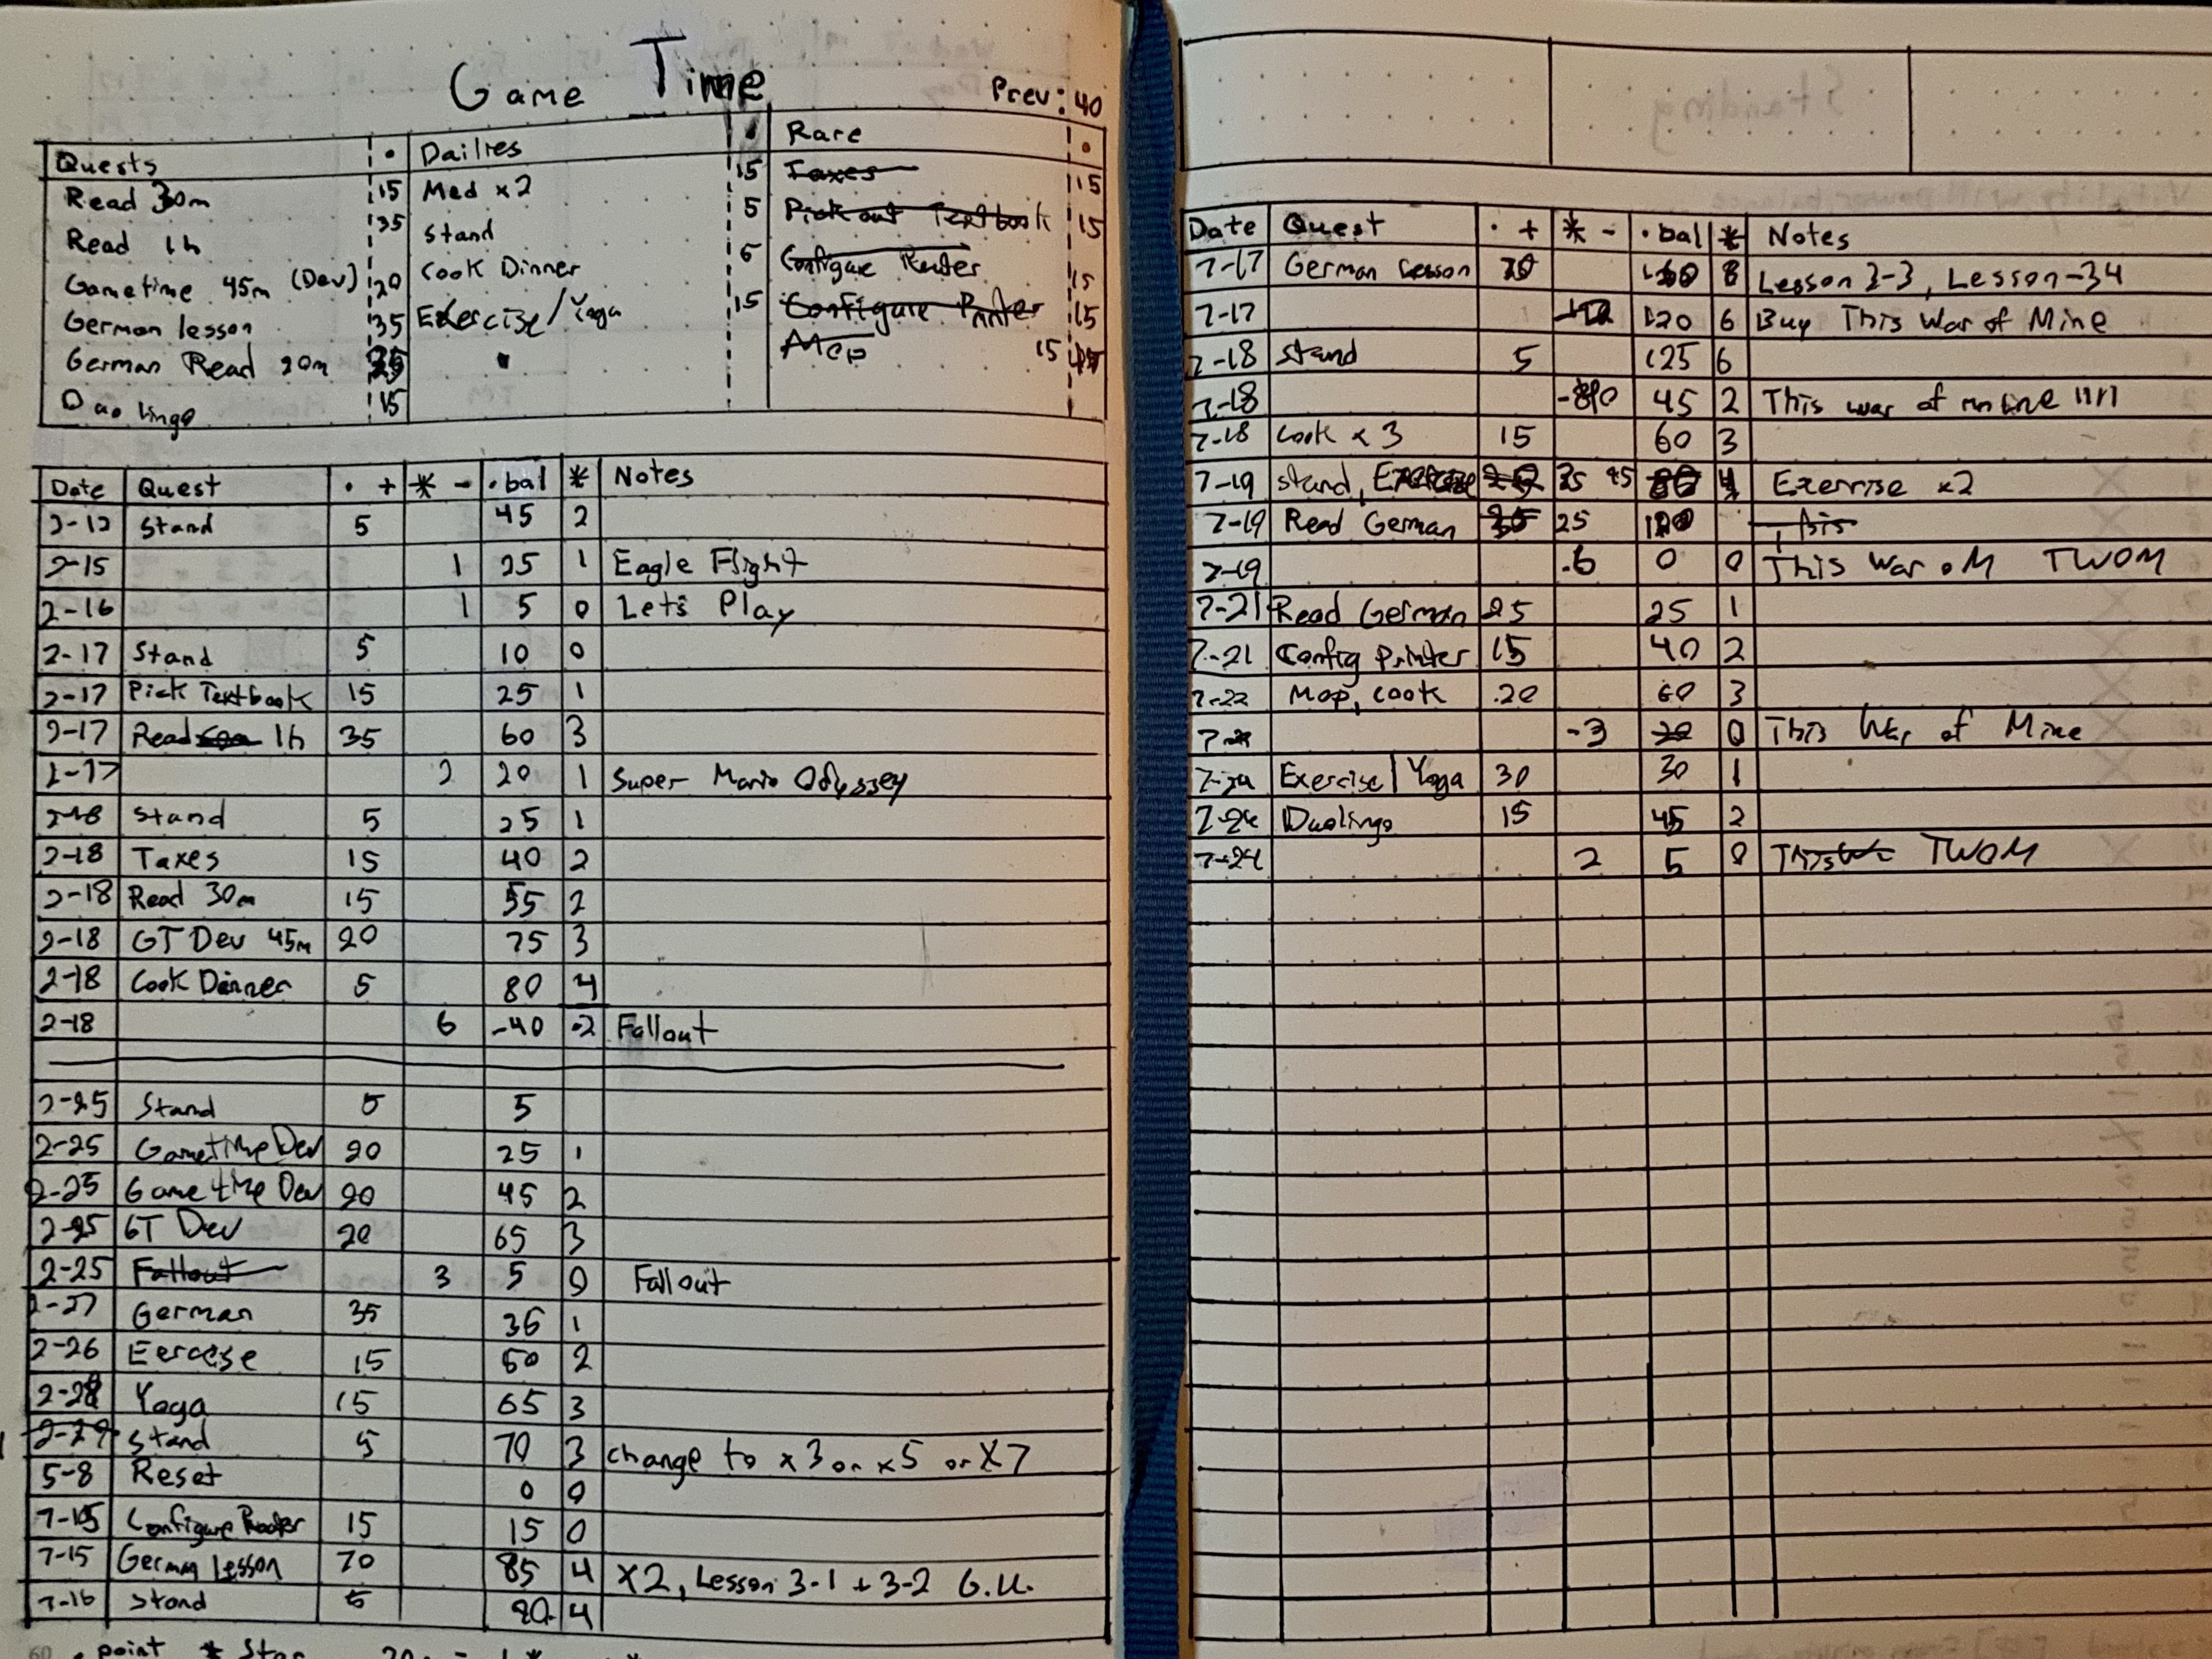 Game Time
Prev: 40
Quests • Dailies • Rare •
Read 30m 15 Med x2 15 Taxes 15
Read 1h 35 Stand 5 Pick out Textbook 15
Gametime 45m (Dev) 20 Cook Dinner 5 Configure Router 15
German lesson 35 Exercise/Yoga 15 Configure Printer 15
German Read 20m Mop 15
Duolingo 15
Date Quest • + * - • bal * Notes
2-12 Stand 5 45 2
2-15 1 25 1 Eagle Flight
2-16 1 5 0 Let's Play
2-17 Stand 5 10 0
2-17 Pick Textbook 15 25 1
2-17 Read 1h 35 60 3
2-17 2 20 1 Super Mario Odyssey
2-18 Stand 5 25 1
2-18 Taxes 15 40 2
2-18 Read 30m 15 55 2
2-18 GT Dev 45m 20 75 3
2-18 Cook Dinner 5 80 4
2-18 6 -40 -2 Fallout
2-25 Stand 5 5
2-25 Gametime Dev 20 25 1
2-25 Game time Dev 20 45 2
2-25 GT Dev 20 65 3
2-25 Fallout 3 5 0 Fallout
2-27 German 35 36 1
2-26 Eercese 15 50 2
2-28 Yoga 15 65 3
2-29 Stand 5 70 3 change to x3 or x5 or x7
5-8 Reset 0 0
7-15 Configure Router 15 15 0
7-15 German Lesson 70 85 4 X2, Lesson 3-1 + 3-2 G.U.
7-16 Stand 5 90 4
• point * Star
Date Quest • + * - • bal * Notes
7-17 German Lesson 70 160 8 Lesson 3-3, Lesson-34
7-17 120 6 Buy This War of Mine
7-18 Stand 5 125 6
7-18 -80 45 2 This war of mine
7-18 Cook x 3 15 60 3
7-19 Stand, Exercise 35 95 4 Exercise x2
7-19 Read German 35 25 120
7-19 -6 0 0 This War oM TWOM
7-21 Read German 25 25 1
7-21 Config Printer 15 40 2
7-22 Mop, cook 20 60 3
-3 0 This War of Mine
7-24 Exercise/Yoga 30 30 1
7-24 Duolingo 15 45 2
7-24 2 5 0 TWOM